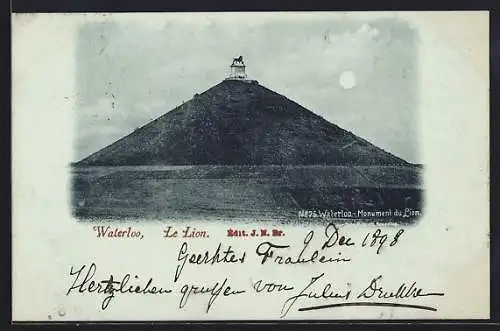 Nº 25 Waterloo - Monument du Lion.
Waterloo, Le Lion. Édit. J. N. Br.
9 Dec 1898
Geerktes Fraulein
Hertzlichen grussen von Julius